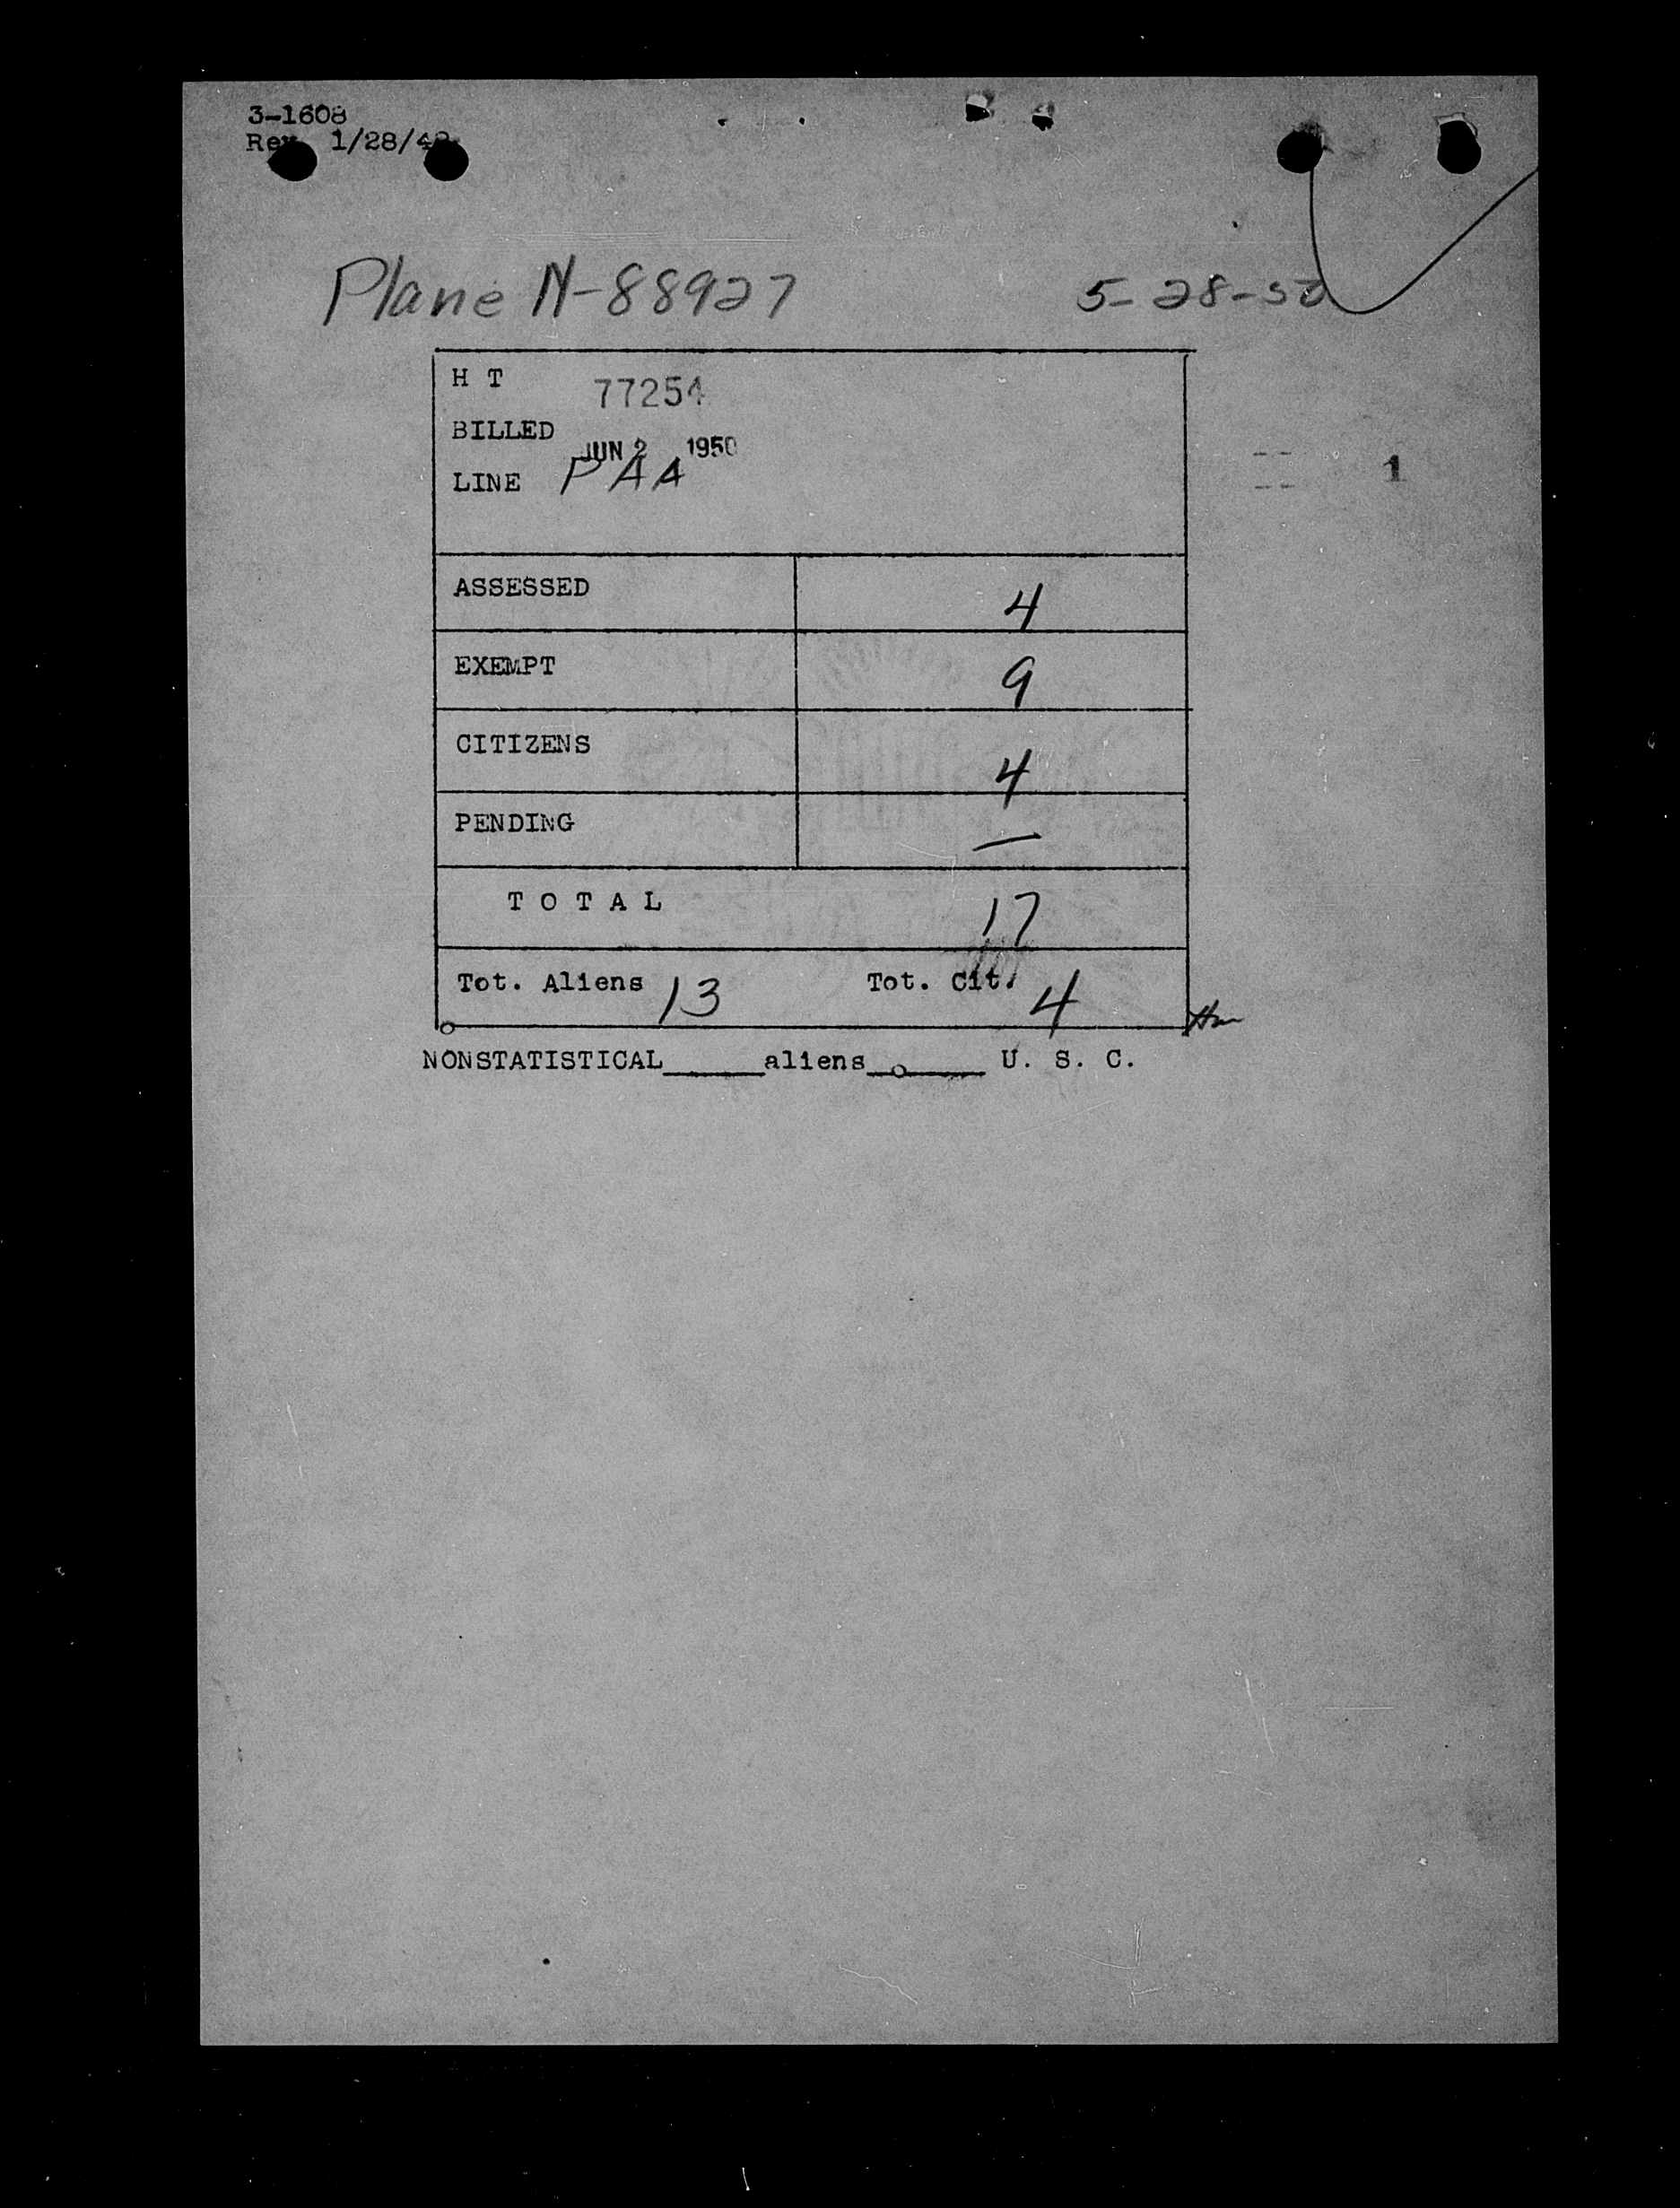 3-1608
Rev. 1/28/48
Plane N-88927 5-28-50
H T 77254
BILLED JUN 2 1950
LINE PAA
1
ASSESSED 4
EXEMPT 9
CITIZENS 4
PENDING —
T O T A L 17
Tot. Aliens 13 Tot. Cit. 4
NONSTATISTICAL______aliens_______ U. S. C.